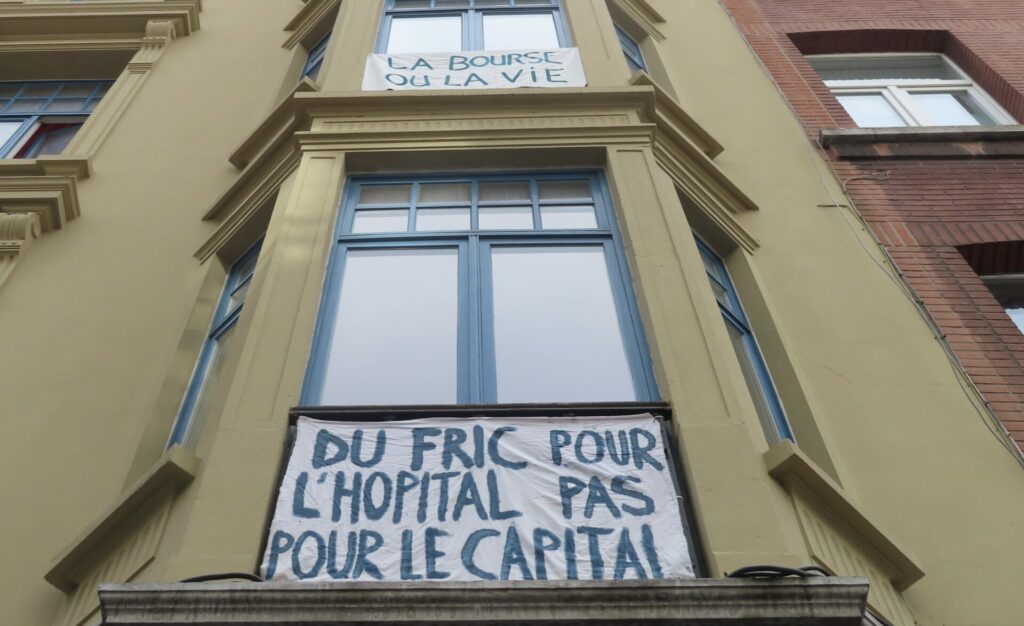 LA BOURSE
OU LA ViE
DU FRIC POUR
L'HOPITAL PAS
POUR LE CAPITAL